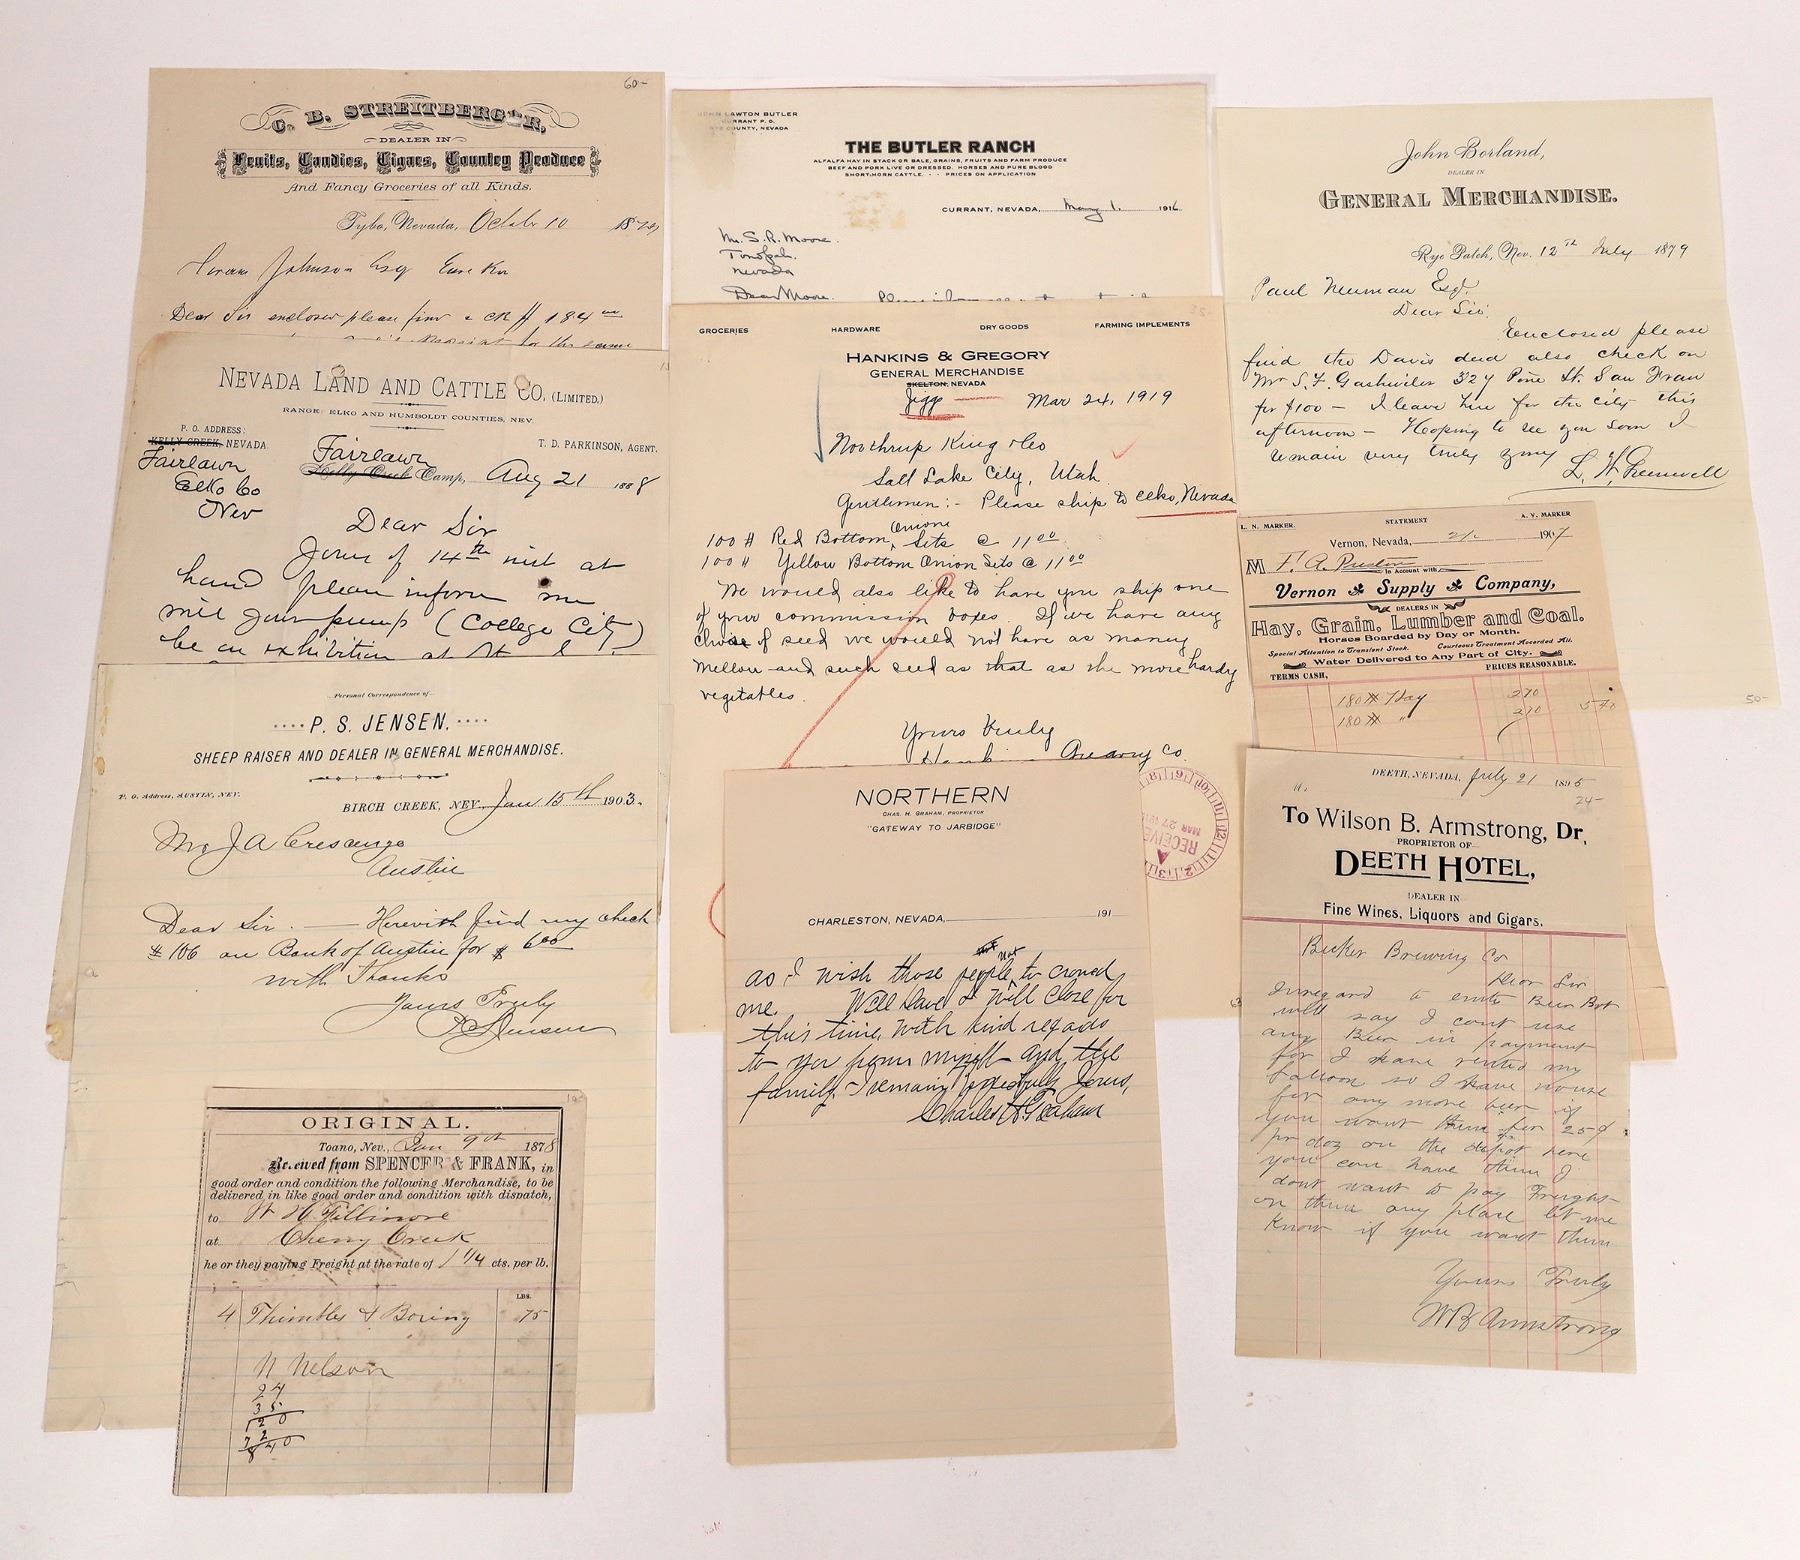 60-
C. B. STREITBERGER,
DEALER IN
Fruits, Candies, Cigars, Country Produce
And Fancy Groceries of all Kinds.
Tybo, Nevada, October 10 187
Johnson Esq
Dear Sir enclosed please find a ck # 184
for the same
NEVADA LAND AND CATTLE CO. (LIMITED.)
RANGE: ELKO AND HUMBOLDT COUNTIES, NEV.
P. O. ADDRESS:
KELLY CREEK, NEVADA.
T. D. PARKINSON, AGENT.
Fairlawn
Elko Co
Nev
Fairlawn
Kelly Creek Camp, Aug 21 1888
Dear Sir
Yours of 14th inst at
hand please inform me
will your pump (College City)
be on exhibition at
Personal Correspondence of
P. S. JENSEN.
SHEEP RAISER AND DEALER IN GENERAL MERCHANDISE.
P. O. Address, AUSTIN, NEV.
BIRCH CREEK, NEV., Jan 15th 1903.
Mr J A
Austin
Dear Sir. — Herewith find my check
# 106 on Bank of Austin for $ 6 00
with Thanks
Yours Truly
P S Jensen
10-
ORIGINAL.
Toano, Nev., Jan 9th 1878
Received from SPENCER & FRANK, in
good order and condition the following Merchandise, to be
delivered in like good order and condition with dispatch,
to W H Fillmore
at Cherry Creek
he or they paying Freight at the rate of 1 1/4 cts. per lb.
LBS.
4 Thimbles & Boxing 75
N Nelson
24
35
120
72
840
JOHN LAWTON BUTLER
CURRANT P. O.
NYE COUNTY, NEVADA
THE BUTLER RANCH
ALFALFA HAY IN STACK OR BALE, GRAINS, FRUITS AND FARM PRODUCE
BEEF AND PORK LIVE OR DRESSED. HORSES AND PURE BLOOD
SHORT-HORN CATTLE. - - PRICES ON APPLICATION
CURRANT, NEVADA, May 1. 1916
Mr. S. R. Moore.
Tonopah.
Nevada
Dear Moore.
35-
GROCERIES HARDWARE DRY GOODS FARMING IMPLEMENTS
HANKINS & GREGORY
GENERAL MERCHANDISE
SKELTON, NEVADA
Jiggs Mar 24, 1919
Northrup King & Co
Salt Lake City, Utah.
Gentlemen:- Please ship to Elko, Nevada
100 # Red Bottom Onion Sets @ 11 00
100 # Yellow Bottom Onion Sets @ 11 00
We would also like to have you ship one
of your commission boxes. If we have any
choise of seed we would not have as many
Mellon and such seed as that as the more hardy
vegetables.
Yours truly
Gregory Co.
RECEIVED
MAR 27 191
NORTHERN
CHAS. H. GRAHAM, PROPRIETOR
"GATEWAY TO JARBIDGE"
CHARLESTON, NEVADA, 191
not
as I wish those people to crowd
me. Well Dave I will close for
this time, with kind regards
to you from myself and the
family. I remain Respectfully Yours,
Charles H Graham
John Borland,
DEALER IN
GENERAL MERCHANDISE.
Rye Patch, Nev. 12th July 1879
Paul Neuman Esq.
Dear Sir:
Enclosed please
find the Davis deed also check on
Mr S. F. Gashwiler 327 Pine St. San Fran
for $100 — I leave here for the city this
afternoon — Hopeing to see you soon I
remain very truly yours
50-
L. N. MARKER. STATEMENT A. V. MARKER
Vernon, Nevada, 190 7
M F. A. Preston
In Account with
Vernon Supply Company,
DEALERS IN
Hay, Grain, Lumber and Coal.
Horses Boarded by Day or Month.
Special Attention to Transient Stock. Courteous Treatment Accorded All.
Water Delivered to Any Part of City.
TERMS CASH, PRICES REASONABLE.
180 # Hay 270
180 # " 270 5 40
DEETH, NEVADA, July 21 1895
24-
To Wilson B. Armstrong, Dr.
PROPRIETOR OF
DEETH HOTEL,
DEALER IN
Fine Wines, Liquors and Cigars.
Becker Brewing Co
Dear Sir
Inregard to emte Beer Bot
will say I cont use
any Beer in payment
for I have rented my
saloon so I have nouse
for any more beer if
you want them for 25¢
pr doz on the depot here
you can have them I
dont want to pay Freight
on them any place let me
know if you want them
Yours Truly
W B Armstrong